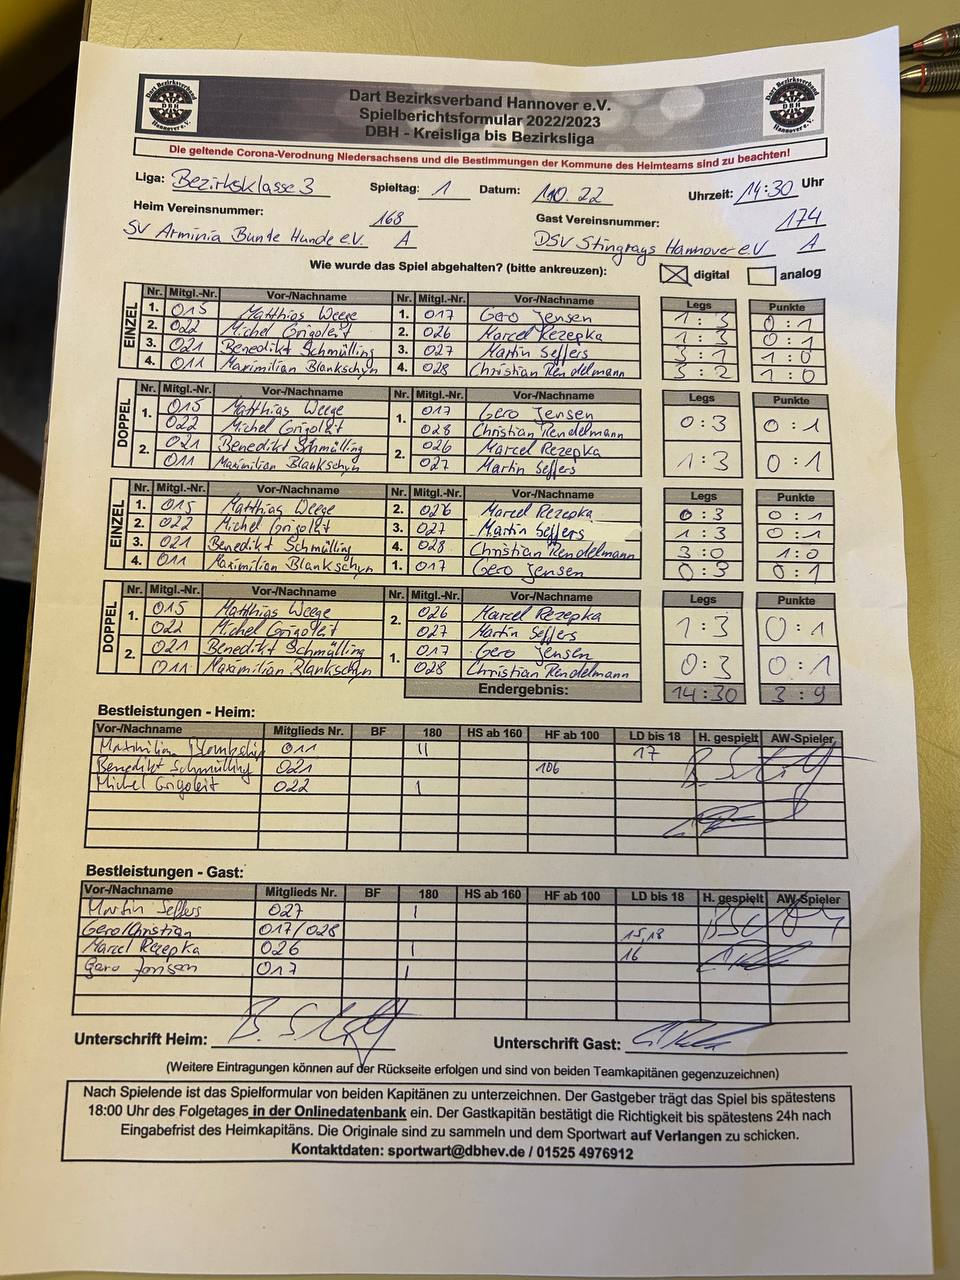 Dart Bezirksverband Hannover e.V.
Spielberichtsformular 2022/2023
DBH - Kreisliga bis Bezirksliga
Die geltende Corona-Verodnung Niedersachsens und die Bestimmungen der Kommune des Heimteams sind zu beachten!
Liga: Bezirksklasse 3 Spieltag: 1 Datum: 1.10.22 Uhrzeit: 14:30 Uhr
Heim Vereinsnummer: 168 Gast Vereinsnummer: 174
SV Arminia Bunte Hunde e.V. A DSV Stingrays Hannover e.V A
Wie wurde das Spiel abgehalten? (bitte ankreuzen): digital analog
EINZEL
Nr. Mitgl.-Nr. Vor-/Nachname Nr. Mitgl.-Nr. Vor-/Nachname Legs Punkte
1. 015 Matthias Weege 1. 017 Gero Jensen 1 : 3 0 : 1
2. 022 Michel Grigoleit 2. 026 Marcel Rezepka 1 : 3 0 : 1
3. 021 Benedikt Schmülling 3. 027 Martin Seffers 3 : 1 1 : 0
4. 011 Maximilian Blankschyn 4. 028 Christian Rendelmann 3 : 2 1 : 0
DOPPEL
Nr. Mitgl.-Nr. Vor-/Nachname Nr. Mitgl.-Nr. Vor-/Nachname Legs Punkte
1. 015 Matthias Weege 1. 017 Gero Jensen 0 : 3 0 : 1
022 Michel Grigoleit 028 Christian Rendelmann
2. 021 Benedikt Schmülling 2. 026 Marcel Rezepka 1 : 3 0 : 1
011 Maximilian Blankschyn 027 Martin Seffers
EINZEL
Nr. Mitgl.-Nr. Vor-/Nachname Nr. Mitgl.-Nr. Vor-/Nachname Legs Punkte
1. 015 Matthias Weege 2. 026 Marcel Rezepka 0 : 3 0 : 1
2. 022 Michel Grigoleit 3. 027 Martin Seffers 1 : 3 0 : 1
3. 021 Benedikt Schmülling 4. 028 Christian Rendelmann 3 : 0 1 : 0
4. 011 Maximilian Blankschyn 1. 017 Gero Jensen 0 : 3 0 : 1
DOPPEL
Nr. Mitgl.-Nr. Vor-/Nachname Nr. Mitgl.-Nr. Vor-/Nachname Legs Punkte
1. 015 Matthias Weege 2. 026 Marcel Rezepka 1 : 3 0 : 1
022 Michel Grigoleit 027 Martin Seffers
2. 021 Benedikt Schmülling 1. 017 Gero Jensen 0 : 3 0 : 1
011 Maximilian Blankschyn 028 Christian Rendelmann
Endergebnis: 14 : 30 3 : 9
Bestleistungen - Heim:
Vor-/Nachname Mitglieds Nr. BF 180 HS ab 160 HF ab 100 LD bis 18 H. gespielt AW-Spieler
011 || 17
Benedikt Schmülling 021 106
Michel Grigoleit 022 |
Bestleistungen - Gast:
Vor-/Nachname Mitglieds Nr. BF 180 HS ab 160 HF ab 100 LD bis 18 H. gespielt AW-Spieler
Martin Seffers 027 |
Gero/Christian 017/028 15,18
Marcel Rezepka 026 | 16
Gero Jensen 017 |
Unterschrift Heim: Unterschrift Gast:
(Weitere Eintragungen können auf der Rückseite erfolgen und sind von beiden Teamkapitänen gegenzuzeichnen)
Nach Spielende ist das Spielformular von beiden Kapitänen zu unterzeichnen. Der Gastgeber trägt das Spiel bis spätestens
18:00 Uhr des Folgetages in der Onlinedatenbank ein. Der Gastkapitän bestätigt die Richtigkeit bis spätestens 24h nach
Eingabefrist des Heimkapitäns. Die Originale sind zu sammeln und dem Sportwart auf Verlangen zu schicken.
Kontaktdaten: sportwart@dbhev.de / 01525 4976912